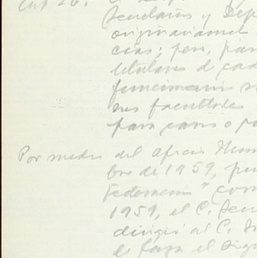 Art 26.
Secretarios y Dep
originariamente
cias; pero, para
titulares de cada
funcionarios
sus facultades
para casos o p
Por medio del oficio Núm
bre de 1959, pu
Federación" com
1959, el C. Secr
dirigió al C.
de Jefe el Dig